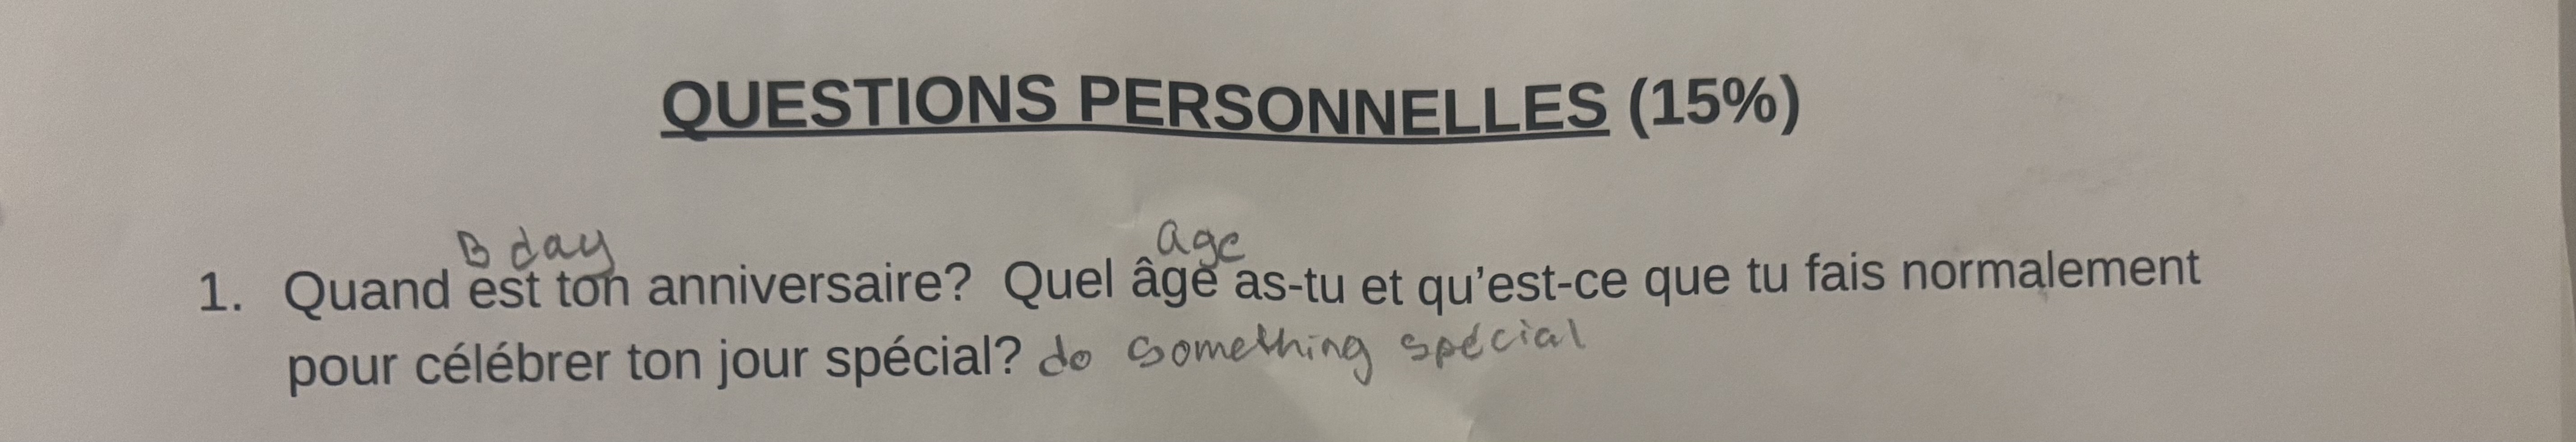 QUESTIONS PERSONNELLES (15%)
B day age
1. Quand est ton anniversaire? Quel âge as-tu et qu'est-ce que tu fais normalement
pour célébrer ton jour spécial? do something spécial